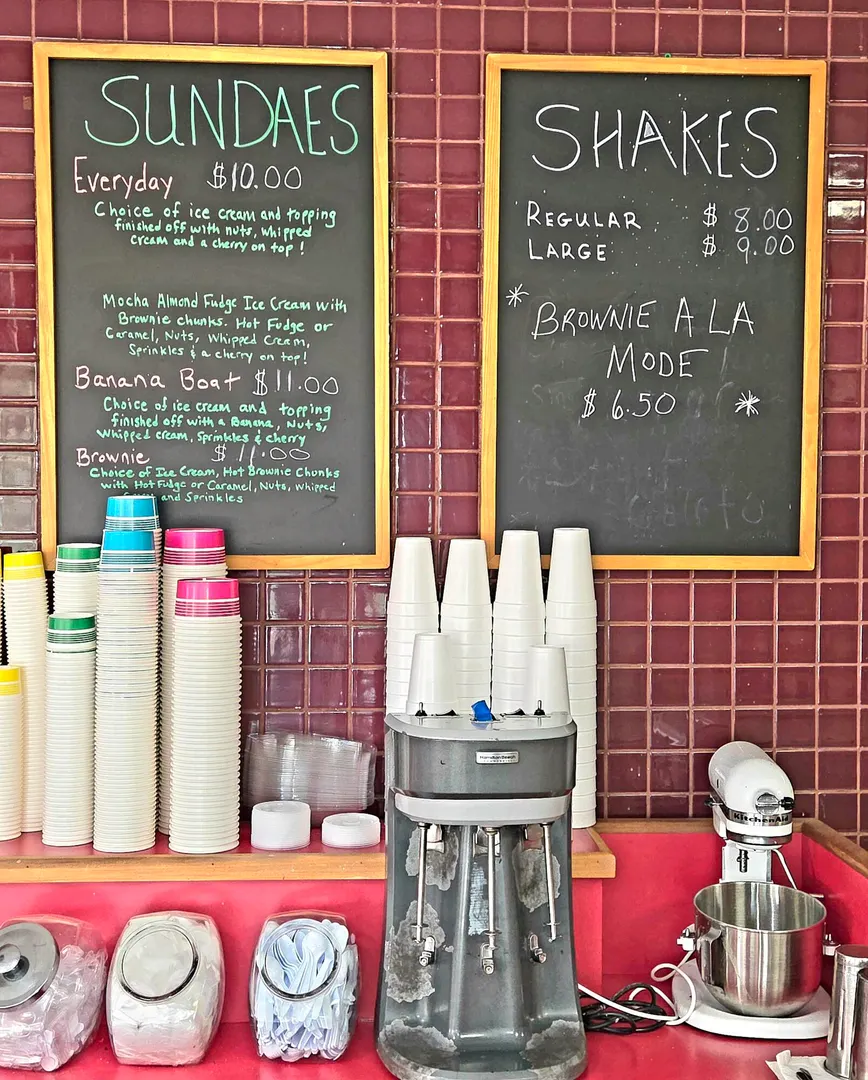 SUNDAES
Everyday $10.00
Choice of ice cream and topping
finished off with nuts, whipped
cream and a cherry on top!
Mocha Almond Fudge Ice Cream with
Brownie chunks. Hot Fudge or
Caramel, Nuts, Whipped Cream,
Sprinkles & a cherry on top!
Banana Boat $11.00
Choice of ice cream and topping
finished off with a Banana, Nuts,
Whipped cream, Sprinkles & cherry
Brownie $11.00
Choice of Ice Cream, Hot Brownie Chunks
with Hot Fudge or Caramel, Nuts, Whipped
and Sprinkles
SHAKES
REGULAR $ 8.00
LARGE $ 9.00
* BROWNIE A LA
MODE
$ 6.50 *
Hamilton Beach
KitchenAid